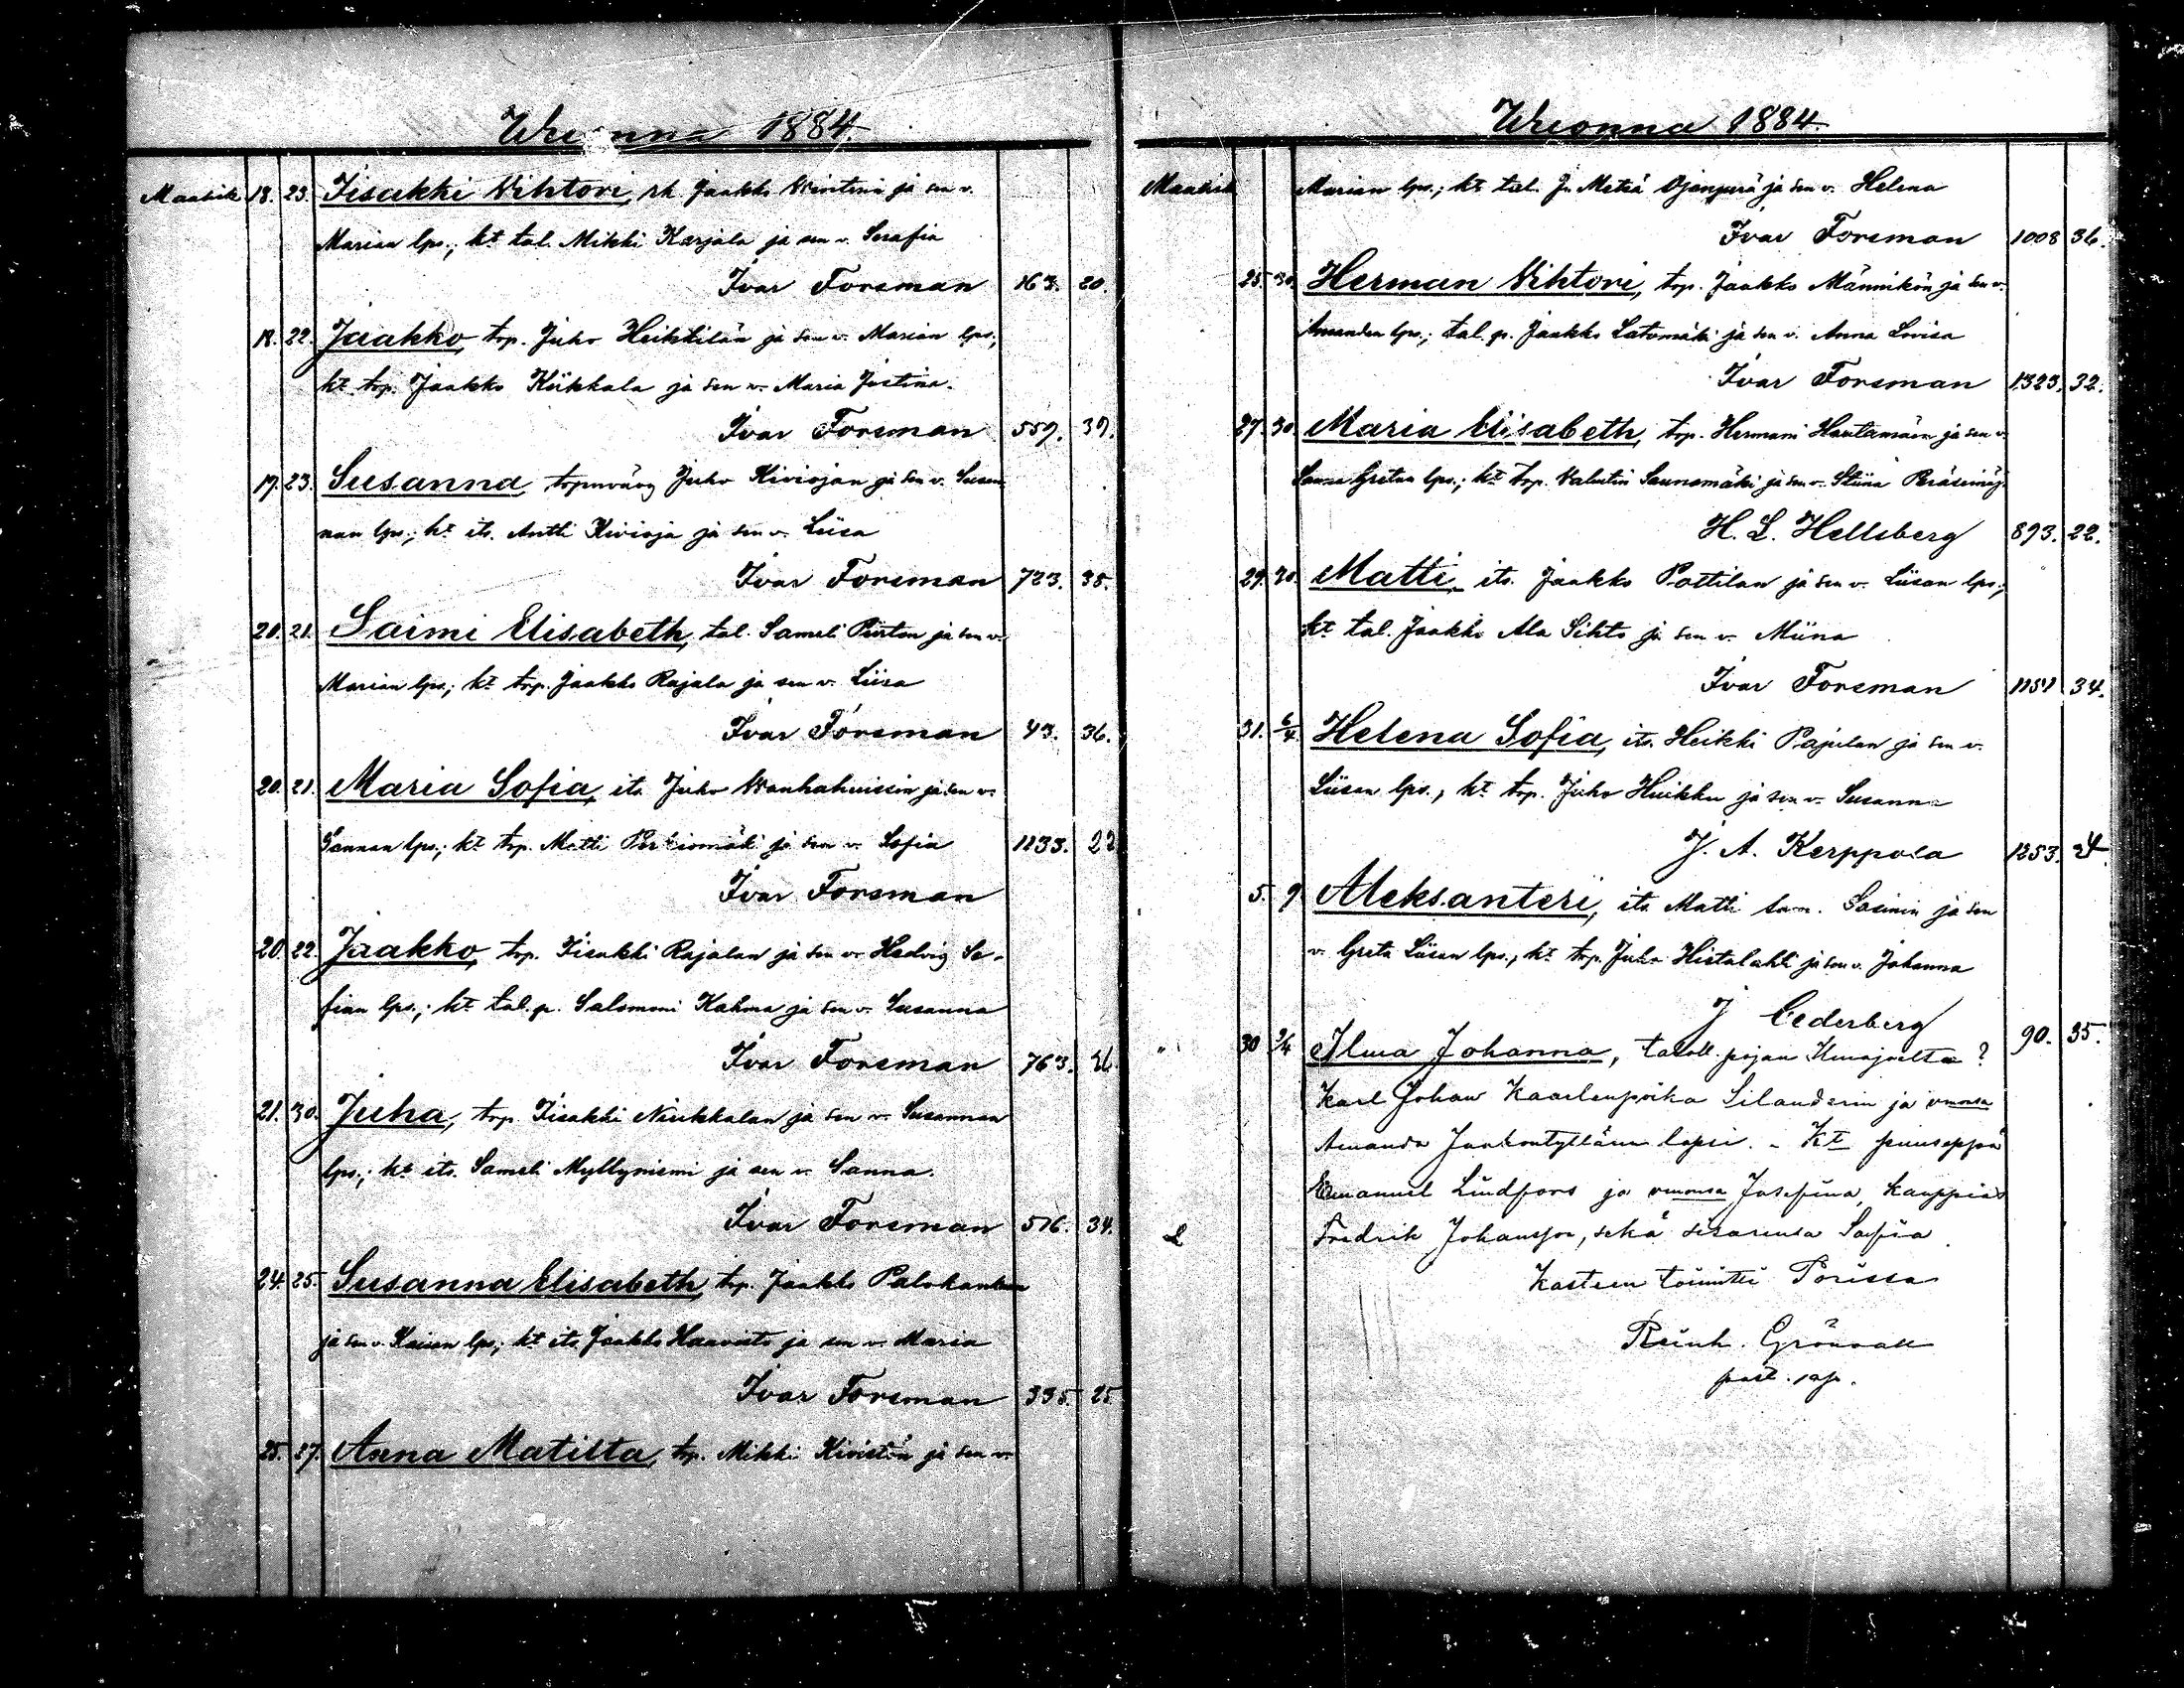 Wuonna 1884.
Maalisk. 18. 23. Iisakki Vihtori, rh. Jaakko Wintini ja sen v.
Marian lps.; kt tal. Mikki Karjala ja sen v. Serafia
Ivar Forsman 163. 20.
18. 22. Jaakko, trp. Juho Heikkilän ja sen v. Marian lps.;
kt trp. Jaakko Kükkala ja sen v. Maria Justina.
Ivar Forsman 559. 39.
17. 23. Susanna, Juho Kiviojan ja sen v. Susan
nan lps.; kt its. Antti Kivioja ja sen v. Liisa
Ivar Forsman 723. 38.
20. 21. Saimi Elisabeth, tal. Sameli ja sen v.
Marian lps.; kt trp. Jaakko Rajala ja sen v. Liisa
Ivar Forsman 43. 36.
20. 21. Maria Sofia, its. Juho ja sen v.
Sannan lps.; kt trp. Matti ja sen v. Sofia 1233. 22
Ivar Forsman
20. 22. Jaakko, trp. Iisakki Rajalan ja sen v. Hedvig So-
fian lps.; kt tal. p. Salomoni Kahma ja sen v. Susanna
Ivar Forsman 763.
21. 30. Juha, trp. Iisakki Niukkalan ja sen v. Susannan
lps.; kt its. Sameli Myllyniemi ja sen v. Sanna.
Ivar Forsman 576. 34.
24. 25. Susanna Elisabeth, trp. Jaakko
ja sen v. Kaisan lps.; kt its. Jaakko Haavisto ja sen v. Maria
Ivar Forsman 335. 25
25. 27. Anna Matilta, trp. Mikki Kivistön ja sen v.
Wuonna 1884.
Maalisk. Marian lps.; kt tal. Ojanperä ja sen v. Helena
Ivar Forsman 1008 36.
25. 30. Herman Vihtori, trp. Jaakko Männikön ja sen v.
Amandan lps.; tal. p. Jaakko Latomäki ja sen v. Anna Lovisa
Ivar Forsman 1323. 32.
27. 30. Maria Elisabeth, trp. Hermani Hautamäen ja sen v.
Sanna Gretan lps.; kt trp. Valentin Saunamäki ja sen v. Stiina Peräseinäj.
H. L. Hellsberg 893. 22.
29. 30. Matti, its. Jaakko Pottilan ja sen v. Liisan lps.;
kt tal. Jaakko Ala Sihto ja sen v. Miina
Ivar Forsman 1151 34.
31. 6/4. Helena Sofia, its. Heikki Pajulan ja sen v.
Liisan lps., kt trp. Juho Huikku ja sen v. Susanna
J. A. Kerppola 1253. 24.
5. 9 Aleksanteri, its. Matti Sasinin ja sen
v. Greta Liisan lps., kt trp. Juho Hietalahti ja sen v. Johanna
J Cederberg
90. 35.
" 30 9/4 Ilma Johanna, taloll. pojan Ilmajoelta?
Karl Johan Kaarlenpoika Silanderin ja vmonsa
Amanda lapsi. - Kt puuseppä
Emanuel Lindfors ja vmonsa Josefina, kauppias
Fredrik Johansson, sekä sisarensa Sofia
Kasteen toimitti Porissa
Reinh. Grönvall
past. sap.